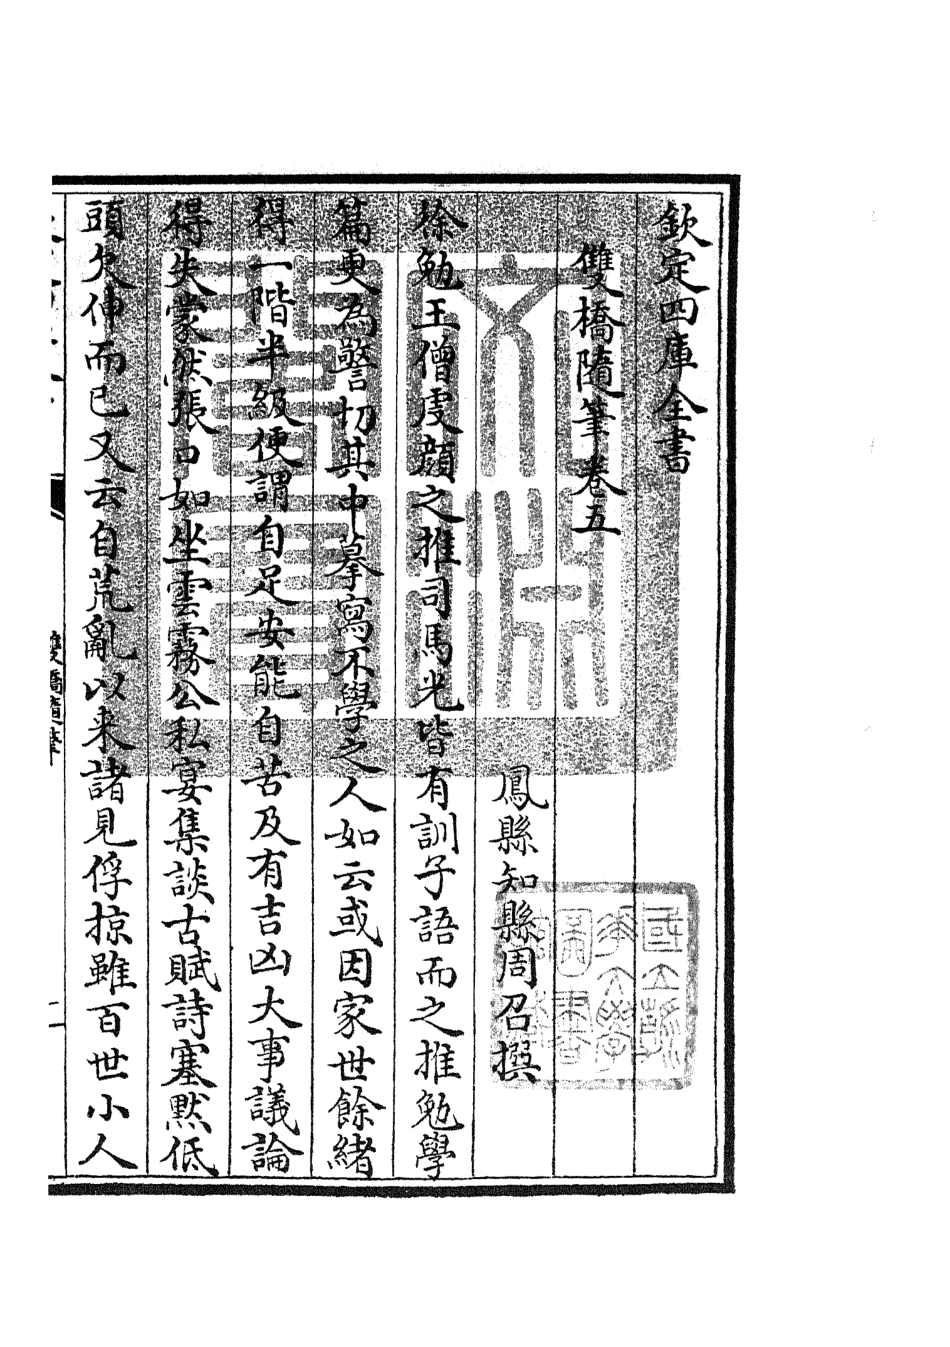 欽定四庫全書
雙橋隨筆卷五
鳳縣知縣周召撰
徐勉王僧虔顔之推司馬光皆有訓子語而之推勉學
篇更為警切其中摹寫不學之人如云或因家世餘緒
得一階半級便謂自足安能自苦及有吉凶大事議論
得失蒙然張口如坐雲霧公私宴集談古賦詩塞黙低
頭欠伸而已又云自荒亂以来諸見俘掠雖百世小人
雙橋隨筆